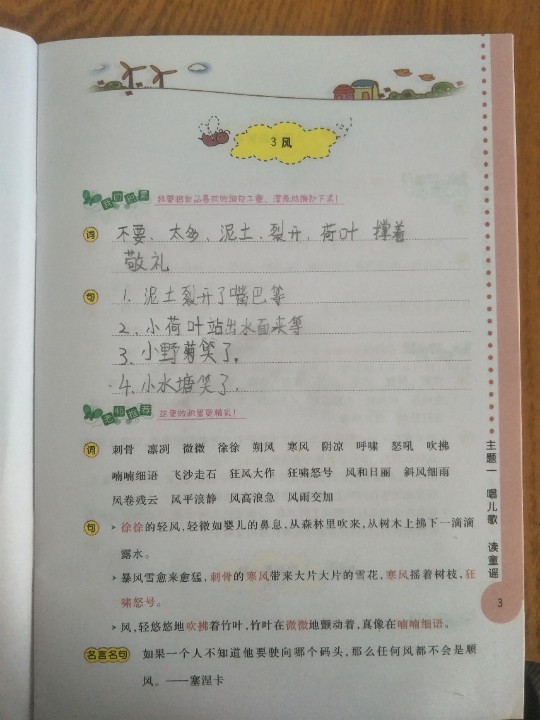 3 风
我的积累 我要把自己喜欢的词句工整、漂亮地摘抄下来!
词 不要、太多、泥土、裂开、荷叶 撑着
敬礼
句 1、泥土裂开了嘴巴等
2、小荷叶站出水面来等
3、小野菊笑了。
4、小水塘笑了.
老师推荐 这里的积累更精彩!
词 刺骨 凛冽 微微 徐徐 朔风 寒风 阴凉 呼啸 怒吼 吹拂
喃喃细语 飞沙走石 狂风大作 狂啸怒号 风和日丽 斜风细雨
风卷残云 风平浪静 风高浪急 风雨交加
句 徐徐的轻风,轻微如婴儿的鼻息,从森林里吹来,从树木上拂下一滴滴
露水。
暴风雪愈来愈猛,刺骨的寒风带来大片大片的雪花,寒风摇着树枝,狂
啸怒号。
风,轻悠悠地吹拂着竹叶,竹叶在微微地颤动着,真像在喃喃细语。
名言名句 如果一个人不知道他要驶向哪个码头,那么任何风都不会是顺
风。——塞涅卡
主题一 唱儿歌 读童谣
3